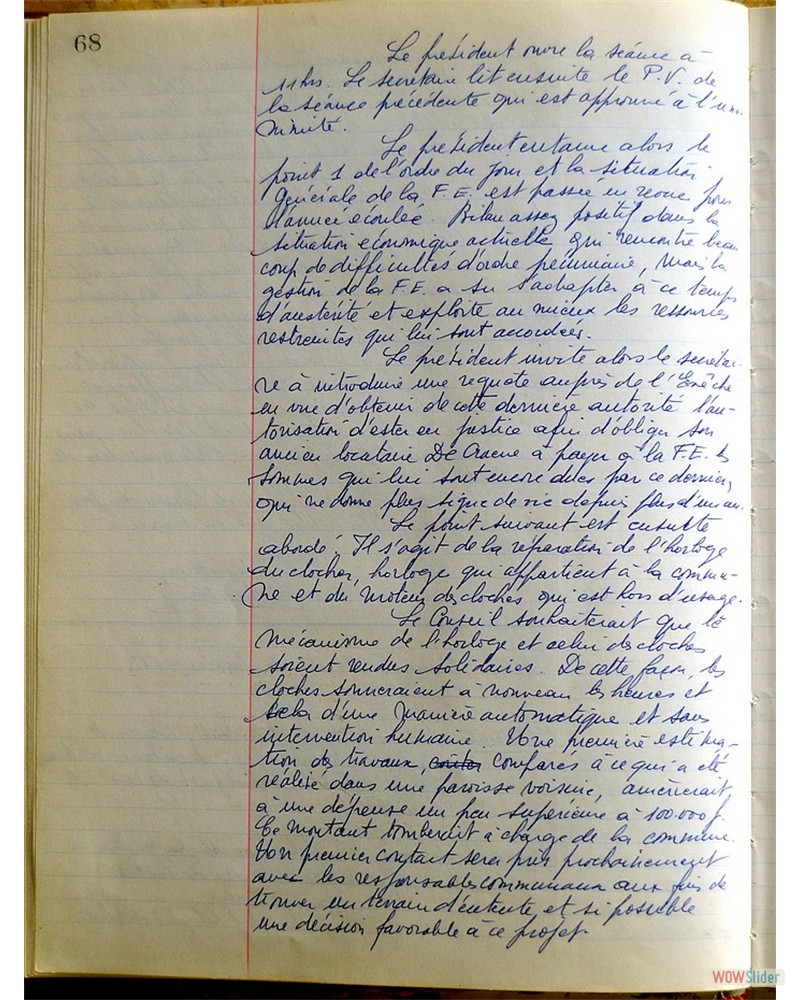 68
Le président ouvre la séance à
11 hrs. Le secrétaire lit ensuite le P.V. de
la séance précédente qui est approuvé à l'una-
nimité.
Le président entame alors le
point 1 de l'ordre du jour et la situation
générale de la F.E. est passée en revue pour
l'année écoulée. Bilan assez positif dans la
situation économique actuelle, qui rencontre beau
coup de difficultés d'ordre pécuniaire, mais la
gestion de la F.E. a su s'adapter à ce temps
d'austérité et exploite au mieux les ressources
restreintes qui lui sont accordées.
Le président invite alors le secrétai-
re à introduire une requête auprès de l'Evêché
en vue d'obtenir de cette dernière autorité l'au-
torisation d'ester en justice afin d'obliger son
ancien locataire De à payer à la F.E. les
sommes qui lui sont encore dues par ce dernier,
qui ne donne plus signe de vie depuis plus d'un an.
Le point suivant est ensuite
abordé. Il s'agit de la réparation de l'horloge
du clocher, horloge qui appartient à la commu-
ne et du moteur des cloches qui est hors d'usage.
Le Conseil souhaiterait que le
mécanisme de l'horloge et celui des cloches
soient rendus solidaires. De cette façon, les
cloches sonneraient à nouveau les heures et
cela d'une manière automatique et sans
intervention humaine. Une première estima-
tion des travaux, comparés à ce qui a été
réalisé dans une paroisse voisine, amènerait
à une dépense un peu supérieure à 100.000 f.
Ce montant tomberait à charge de la commune.
Un premier contact sera pris prochainement
avec les responsables communaux aux fins de
trouver un terrain d'entente et si possible
une décision favorable à ce projet.
WOWSlider